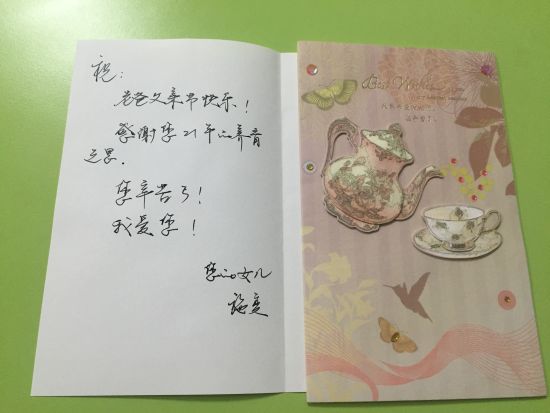 祝：
老爸父亲节快乐！
感谢您21年的养育
之恩．
您辛苦了！
我爱您！
您的女儿
Best Wishes